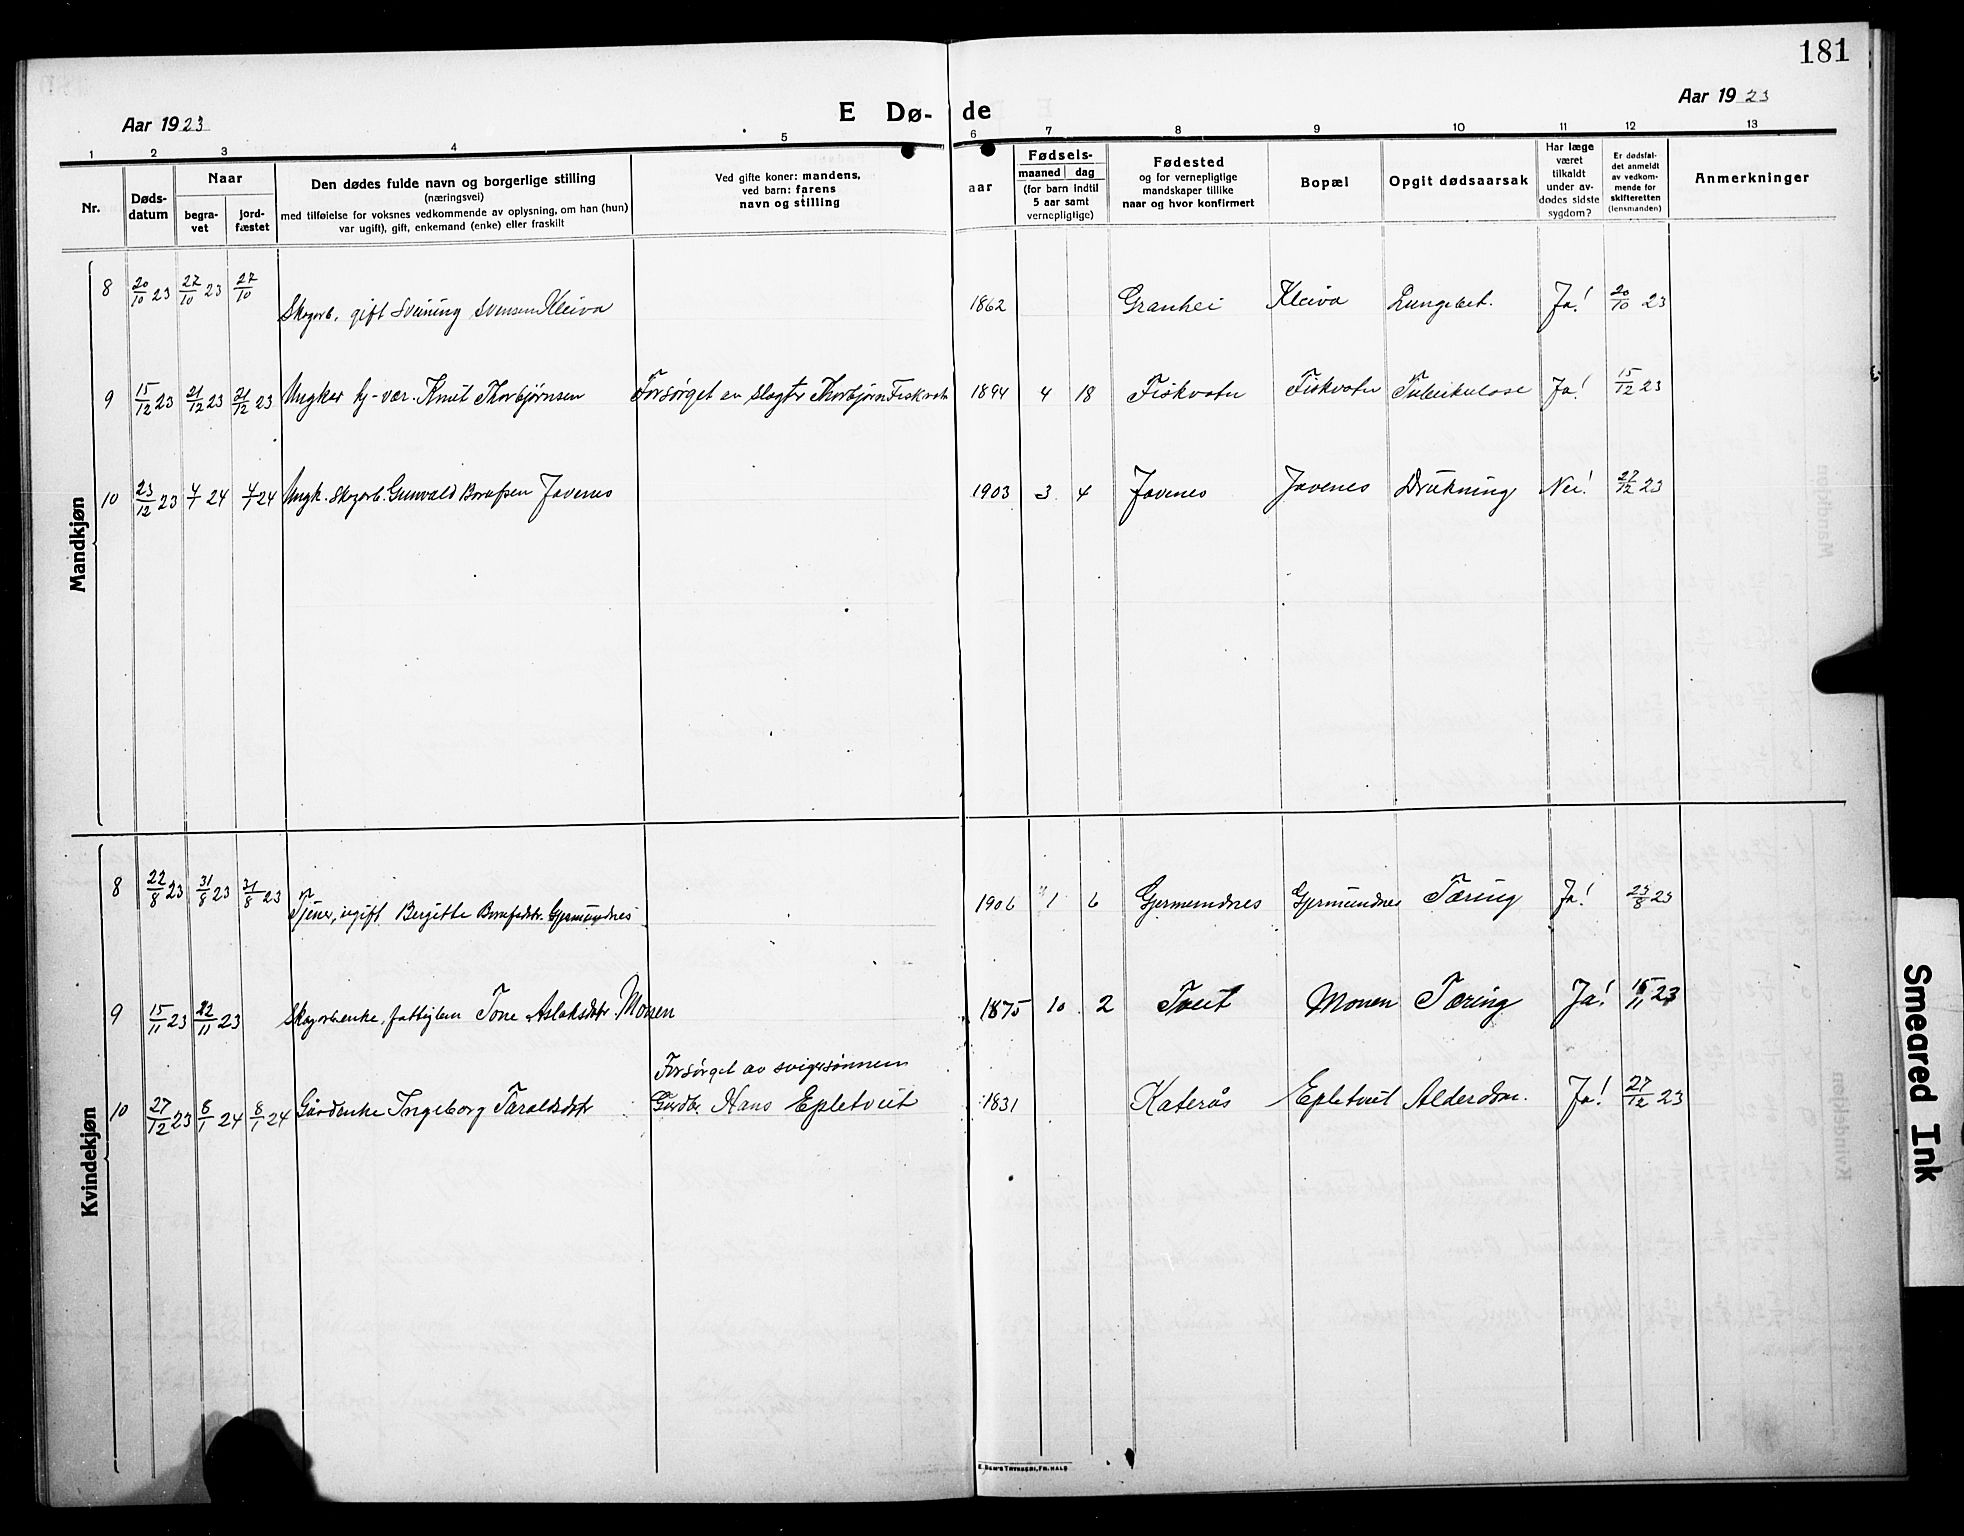 181
Aar 1923
E Dø-de
Aar 1923
1 2 3 4 5 6 7 8 9 10 11 12 13
Nr.
Døds-
datum
Naar
begra-
vet
jord-
fæstet
Den dødes fulde navn og borgerlige stilling
(næringsvei)
med tilføielse for voksnes vedkommende av oplysning, om han (hun)
var ugift), gift, enkemand (enke) eller fraskilt
Ved gifte koner: mandens,
ved barn: farens
navn og stilling
aar
Fødsels-
maaned dag
(for barn indtil
5 aar samt
vernepligtige)
Fødested
og for vernepligtige
mandskaper tillike
naar og hvor konfirmert
Bopæl
Opgit dødsaarsak
Har læge
været
tilkaldt
under av-
dødes sidste
sygdom?
Er dødsfal-
det anmeldt
av vedkom-
mende for
skifteretten
(lensmanden)
Anmerkninger
Mandkjøn
8 20/10 23 27/10 23 27/10 Skogarb. gift Sveinung Svensen Kleiva 1862 Granhei Kleiva Lungebet. Ja! 20/10 23
9 15/12 23 21/12 23 21/12 23 Ungkar hj-vær. Knut Thorbjørnsen Forsørget av slagtr Thorbjørn Fiskvatn 1894 4 18 Fiskvatn Fiskvatn Tuberkulose Ja! 15/12 23
10 23/12 23 4/1 24 4/1 24 Ungk. Skogarb. Gunvald Borafsen Jovenes 1903 3 4 Jovenes Jovenes Drukning Nei! 27/12 23
Kvindekjøn
8 22/8 23 31/8 23 31/8 23 Tjener, ugift Bergitte Gjermundnes 1906 1 6 Gjermundnes Gjermundnes Tæring Ja! 23/8 23
9 15/11 23 22/11 23 Skogarb.enke, fattiglem Tone Aslaksdtr. Monen 1875 10 2 Tveit Monen Tæring Ja! 15/11 23
Forsørget av svigersønnen
10 27/12 23 8/1 24 8/1 24 Gårdenke Ingeborg Taraldsdtr Gardbr Hans Epletveit 1831 Katerås Epletveit Alderdom. Ja! 27/12 23
E. SEM'S TRYKKERI, FR.HALD
Smeared Ink